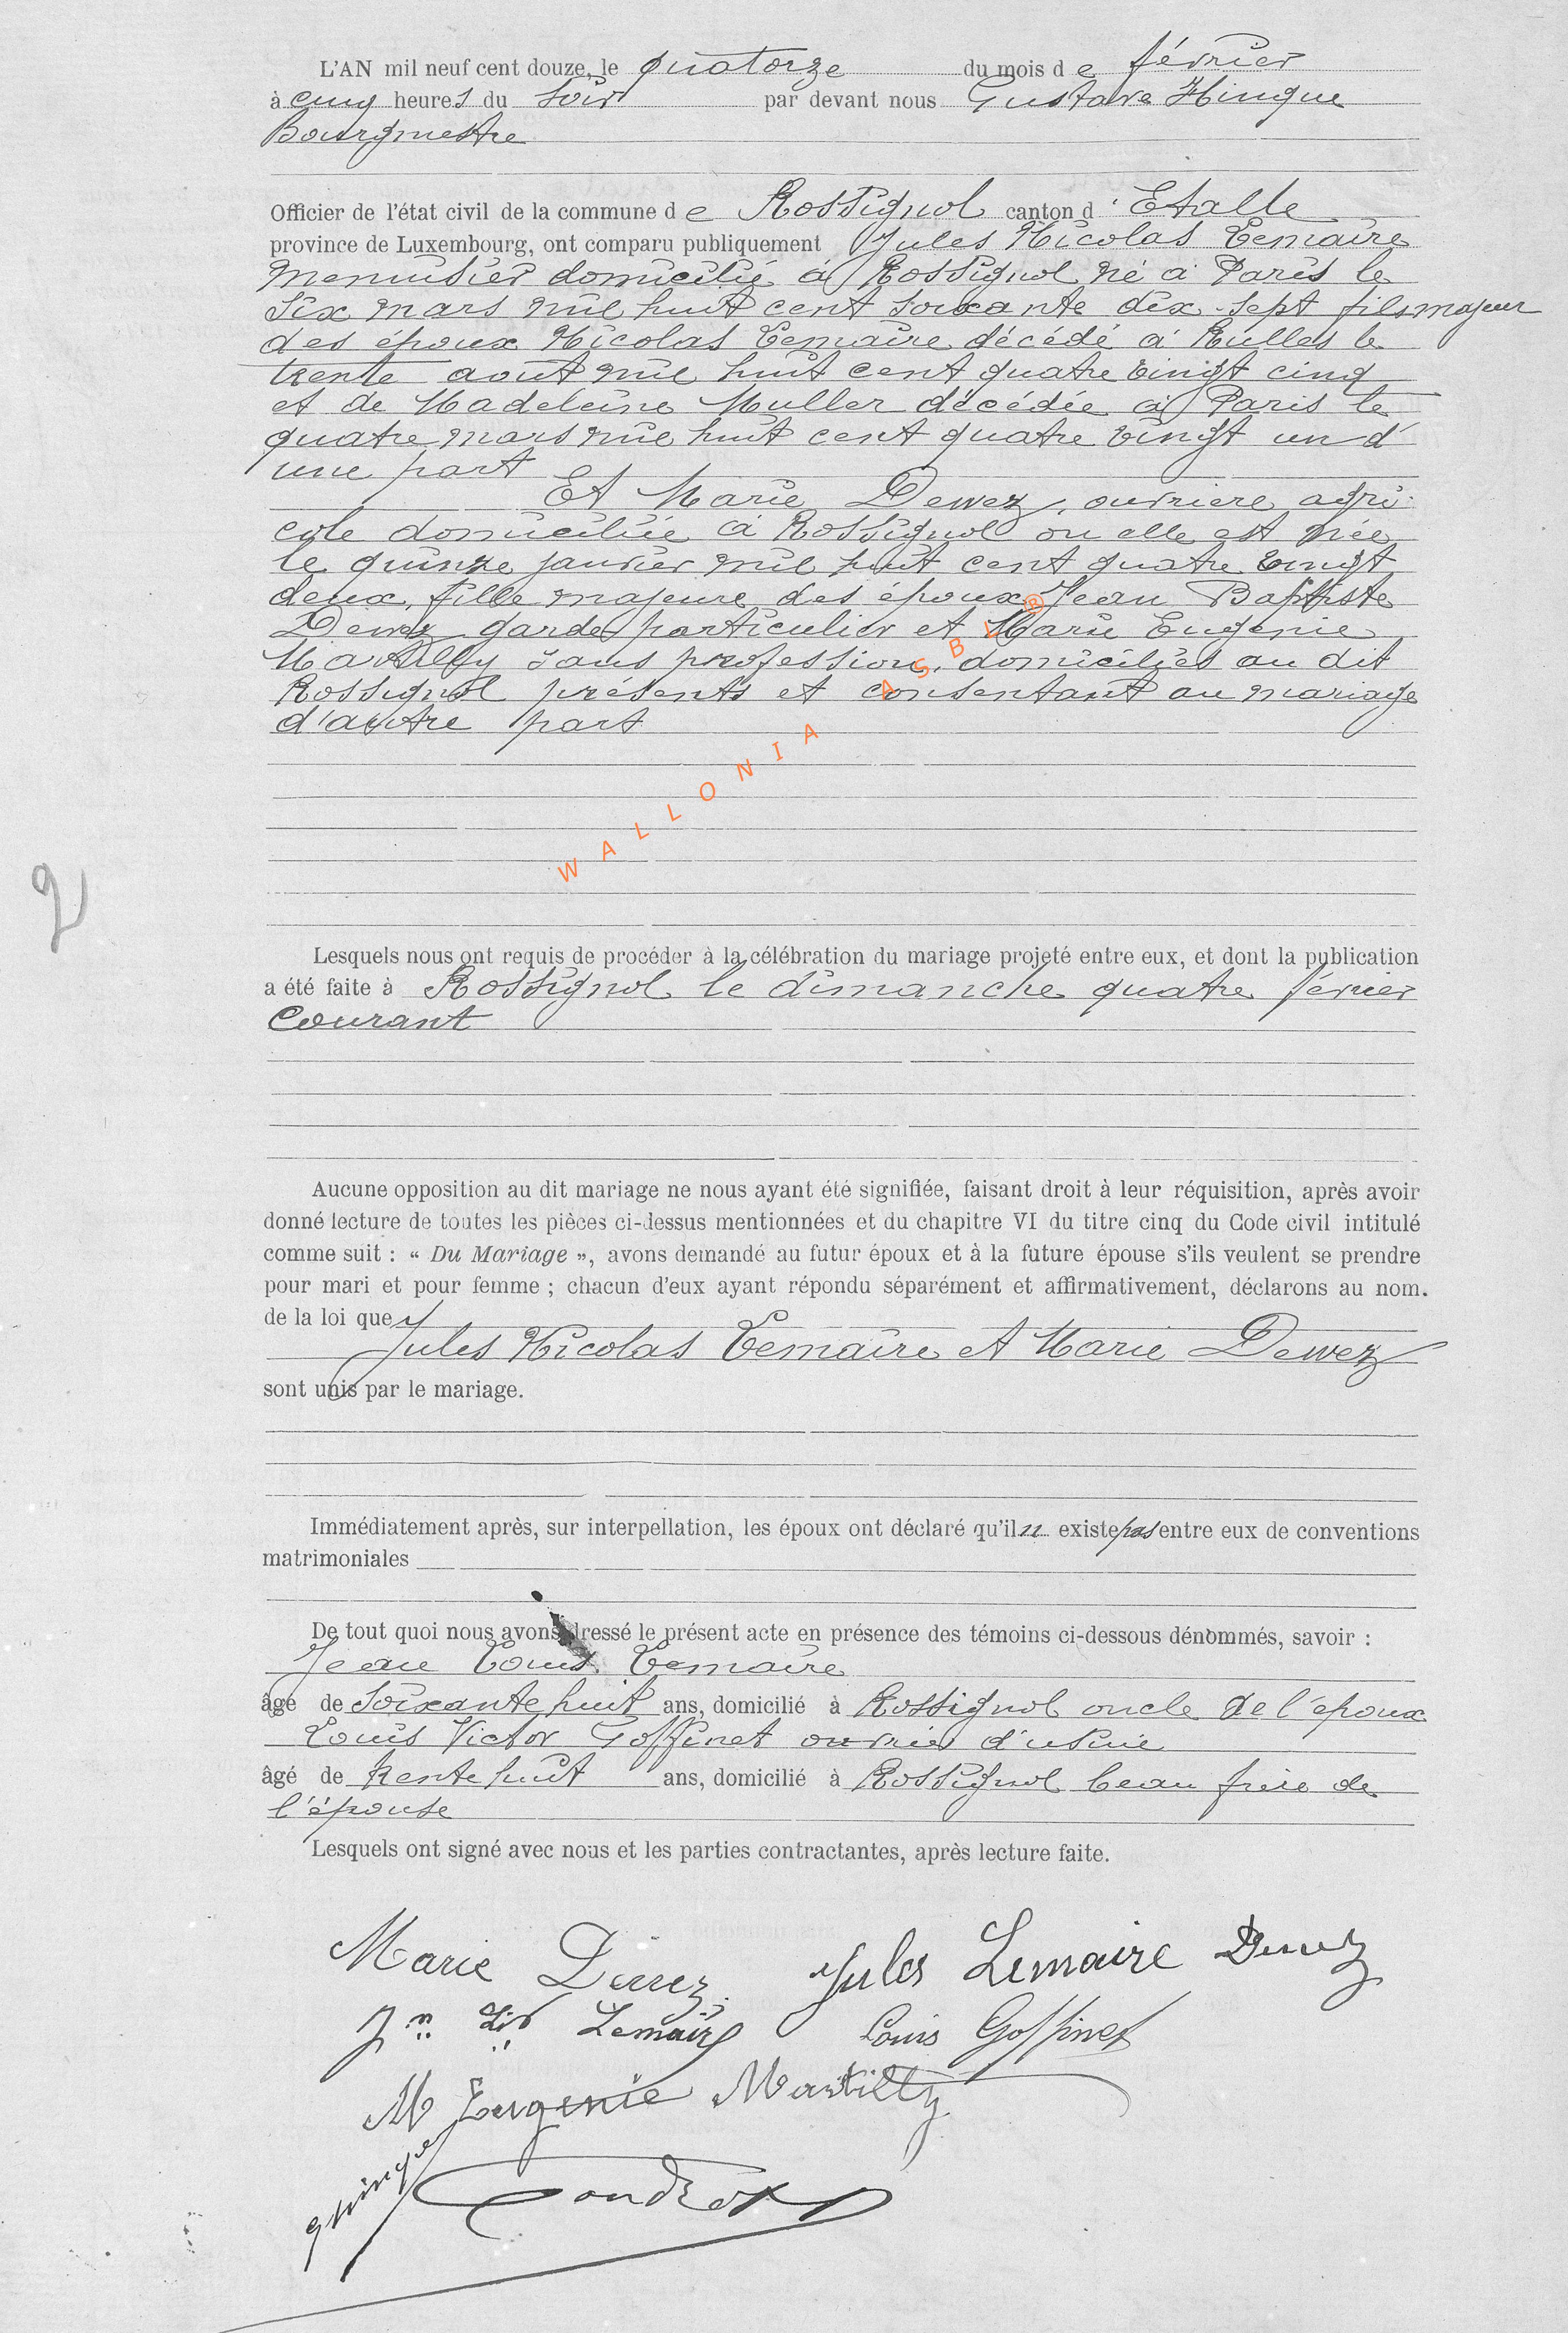 L'AN mil neuf cent douze, le quatorze du mois de février
à cinq heures du soir par devant nous Gustave Hinque
Bourgmestre
Officier de l'état civil de la commune de Rossignol canton d'Etalle
province de Luxembourg, ont comparu publiquement Jules Nicolas Lemaire
menuisier domicilié à Rossignol né à Paris le
six mars mil huit cent soixante dix-sept fils majeur
des époux Nicolas Lemaire décédé à Rulles le
trente août mil huit cent quatre vingt cinq
et de Madeleine Muller décédée à Paris le
quatre mars mil huit cent quatre vingt un d'
une part
Et Marie Dewez, ouvriere agri-
cole domiciliée à Rossignol ou elle est née
le quinze janvier mil huit cent quatre vingt
deux, fille majeure des époux Jean Baptiste
Dewez garde particulier et Marie Eugenie
Martilly sans profession, domiciliés au dit
Rossignol présents et consentant au mariage
d'autre part
WALLONIA ASBL ®
2
Lesquels nous ont requis de procéder à la célébration du mariage projeté entre eux, et dont la publication
a été faite à Rossignol le dimanche quatre février
courant
Aucune opposition au dit mariage ne nous ayant été signifiée, faisant droit à leur réquisition, après avoir
donné lecture de toutes les pièces ci-dessus mentionnées et du chapitre VI du titre cinq du Code civil intitulé
comme suit : « Du Mariage », avons demandé au futur époux et à la future épouse s'ils veulent se prendre
pour mari et pour femme ; chacun d'eux ayant répondu séparément et affirmativement, déclarons au nom.
de la loi que
Jules Nicolas Lemaire et Marie Dewez
sont unis par le mariage.
Immédiatement après, sur interpellation, les époux ont déclaré qu'il n existe pas entre eux de conventions
matrimoniales
De tout quoi nous avons dressé le présent acte en présence des témoins ci-dessous dénommés, savoir :
Jean Louis Lemaire
âgé de soixante huit ans, domicilié à Rossignol oncle de l'époux
Louis Victor Goffinet ouvrier d'usine
âgé de trente huit ans, domicilié à Rossignol beau frère de
l'épouse
Lesquels ont signé avec nous et les parties contractantes, après lecture faite.
Marie Dewez Jules Lemaire Dewez
Jn Ls Lemaire Louis Goffinet
M Eugenie Martilly
GHinque